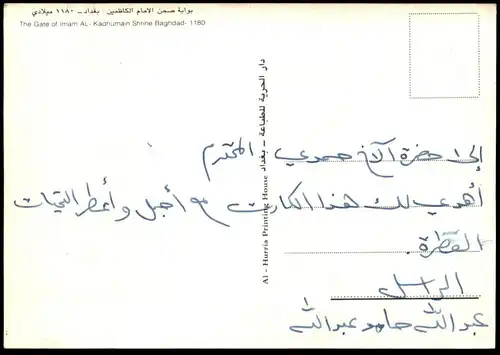 بوابة صحن الامام الكاظمين . بغداد – ١١٨٠ ميلادي
The Gate of Imam AL- Kadhumain Shrine Baghdad- 1180
Al - Hurria Printing House دار الحرية للطباعة – بغداد
إلى حضرة الآخ حمدي المحترم
أهدي لك هذا الكارت مع أجمل وأعطر التحيات
العطرة .
الراسل
عبد الله حامد عبد الله